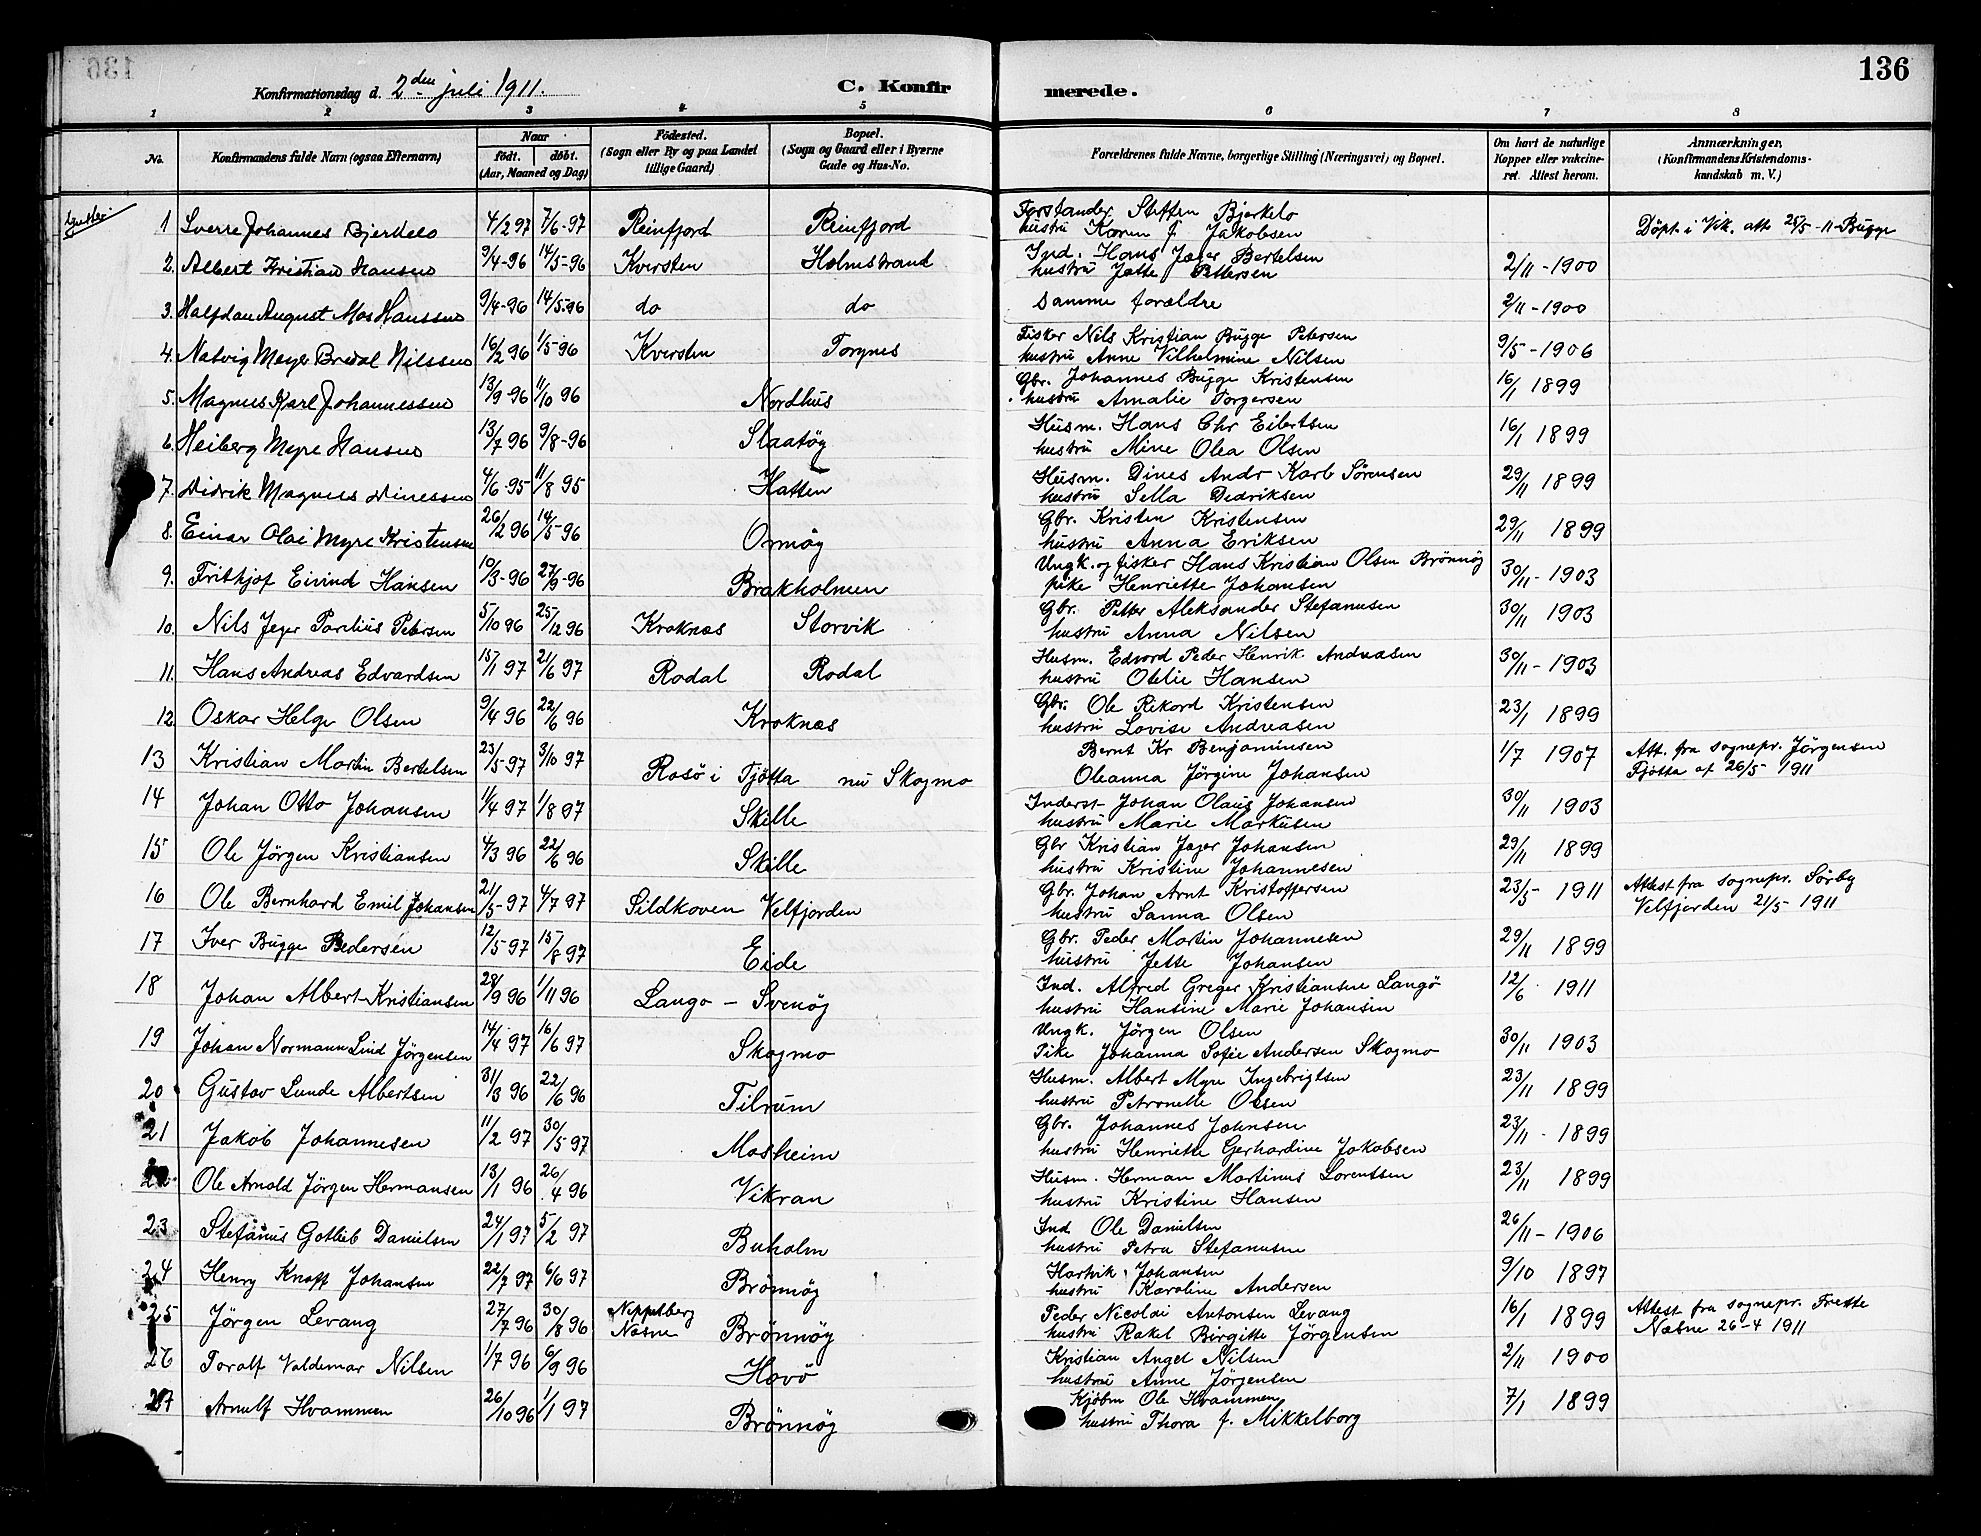 136
Konfirmationsdag d. 2den juli 1911.
C. Konfirmerede.
136
1 2 3 4 5 6 7 8
No.
Konfirmandens fulde Navn (ogsaa Efternavn)
Naar
födt. döbt.
(Aar, Maaned og Dag)
Födested.
(Sogn eller By og paa Landet
tillige Gaard)
Bopæl.
(Sogn og Gaard eller i Byerne
Gade og Hus-No.
Forældrenes fulde Navne, borgerlige Stilling (Næringsvei) og Bopæl.
Om havt de naturlige
Kopper eller vakcine-
ret. Attest herom.
Anmærkninger,
(Konfirmandens Kristendoms-
kundskab m. V.)
Gutter
1 Sverre Johannes Bjerkelo 4/2 97 7/6-97 Reinfjord Reinfjord Forstander Steffen Bjerkelo
hustru Karen f. Jakobsen Döpt i Vik. att. 25/5-11 Bugge
2. Albert Kristian Hansen 9/4-96 14/5-96 Kversten Holmstrand Ind. Hans Jæger Bertelsen 2/11-1900
hustru Jette Pettersen
3. Halfdan August Mos Hanssen 9/4-96 14/5-96 do do Samme forældre 2/11-1900
4. Natvig Meyer Bredal Nilssen 16/2 96 1/5-96 Kversten Torgnes Fisker Nils Kristian Bugge Petersen 9/5-1906
hustru Anne Vilhelmine Nilsen
5. Magnus Karl Johannessen 13/9-96 11/10 96 Nordhus Gbr. Johannes Bugge Kristensen 16/1 1899
hustru Amalie Torgersen
6. Heiberg Myre Hansen 13/7 96 9/8-96 Slaatöy Husm. Hans Chr Eilertsen 16/1 1899
hustru Mine Olea Olsen
7. Didrik Magnus Dinessen 4/6-95 11/8 95 Hatten Husm. Dines Andr Karb Sörensen 29/11 1899
hustru Sella Dedriksen
8. Einar Olai Myre Kristensen 26/2 96 14/5-96 Ormöy Gbr. Kristen Kristensen 29/11 1899
hustru Anna Eriksen
9. Frithjof Eivind Hansen 10/3-96 27/9-96 Brakholmen Ungk. og fisker Hans Kristian Olsen Brönnöy 30/11-1903
pike Henriette Johansen
10. Nils Jeger Parelius Petersen 5/10 96 25/12 96 Kroknes Storvik Gbr. Petter Aleksander Stefanusen 30/11 1903
hustru Anna Nilsen
11. Hans Andreas Edvardsen 15/1 97 21/6 97 Rodal Rodal Husm. Edvard Peder Henrik Andreasen 30/11-1903
hustru Otelie Hansen
12 Oskar Helge Olsen 9/4 96 22/6 96 Kroknæs Gbr. Ole Rikord Kristensen 23/1 1899
hustru Lovise Andreasen
13 Kristian Martin Bertelsen 23/5-97 3/10 97 Rosö i Tjötta nu Skogmo Bernt Kr Benjaminsen 1/7 1907 Att. fra sognepr. Jörgensen
Oleanna Jörgine Johansen Tjötta af 26/5 1911
14 Johan Otto Johansen 1/4 97 1/8 97 Skille Inderst Johan Olaus Johansen 30/11 1903
hustru Marie Markusen
15 Ole Jörgen Kristiansen 4/3 96 22/6 96 Skille Gbr Kristian Jæger Johansen 29/11 1899
hustru Kristine Johannesen
16 Ole Bernhard Emil Johansen 21/5-97 4/7 97 Sildkoven Velfjorden Gbr. Johan Arnt Kristoffersen 23/5-1911 Attest fra sognepr. Sörby
hustru Sanna Olsen Velfjorden 21/5 1911
17 Iver Bugge Pedersen 12/5 97 15/8 97 Eide Gbr. Peder Martin Johannesen 29/11 1899
hustru Jette Johansen
18 Johan Albert Kristiansen 28/9 96 1/11 96 Lango - Svenöy Ind. Alfred Greger Kristiansen Langö 12/6 1911
hustru Hansine Marie Johansen
19 Johan Normann Lind Jörgensen 14/4 97 16/6 97 Skogmo Ungk. Jörgen Olsen 30/11 1903
Pike Johanna Sofie Andersen Skogmo
20 Gustav Lunde Albertsen 31/3 96 22/6 96 Tilrum Husm. Albert Myre Ingebrigtsen 23/11 1899
hustru Petronelle Olsen
21 Jakob Johannesen 11/2 97 30/5 97 Mosheim Gbr. Johannes Johnsen 23/11-1899
hustru Henriette Gerhardine Jakobsen
22 Ole Arnold Jörgen Hermansen 13/1 96 26/4 96 Vikran Husm. Herman Martinus Lorentsen 23/11 1899
hustru Kristine Hansen
23 Stefanus Gotlieb Danielsen 24/1 97 5/2 97 Buholm Ind Ole Danielsen 26/11-1906
hustru Petra Stefanusen
24 Henry Knoff Johansen 22/2 97 6/6 97 Brönnöy Hartvik Johansen 9/10 1897
hustru Karoline Andersen
25 Jörgen Levang 27/7 96 30/8 96 Nipptsberg
Nesne Brönnöy Peder Nicolai Antonsen Levang 16/1 1899 Attest fra sognepr. Frette
hustru Rakel Bergitte Jörgensen Næsne 26-4 1911
26 Toralf Valdemar Nilsen 1/7 96 6/9 96 Havö Kristian Angel Nilsen 2/11 1900
hustru Anne Jörgensen
27 Arnulf Hvammen 26/10 96 1/1 97 Brönnöy Kjöbm Ole Hvammen 7/1 1899
hustru Thora f. Mikkelborg